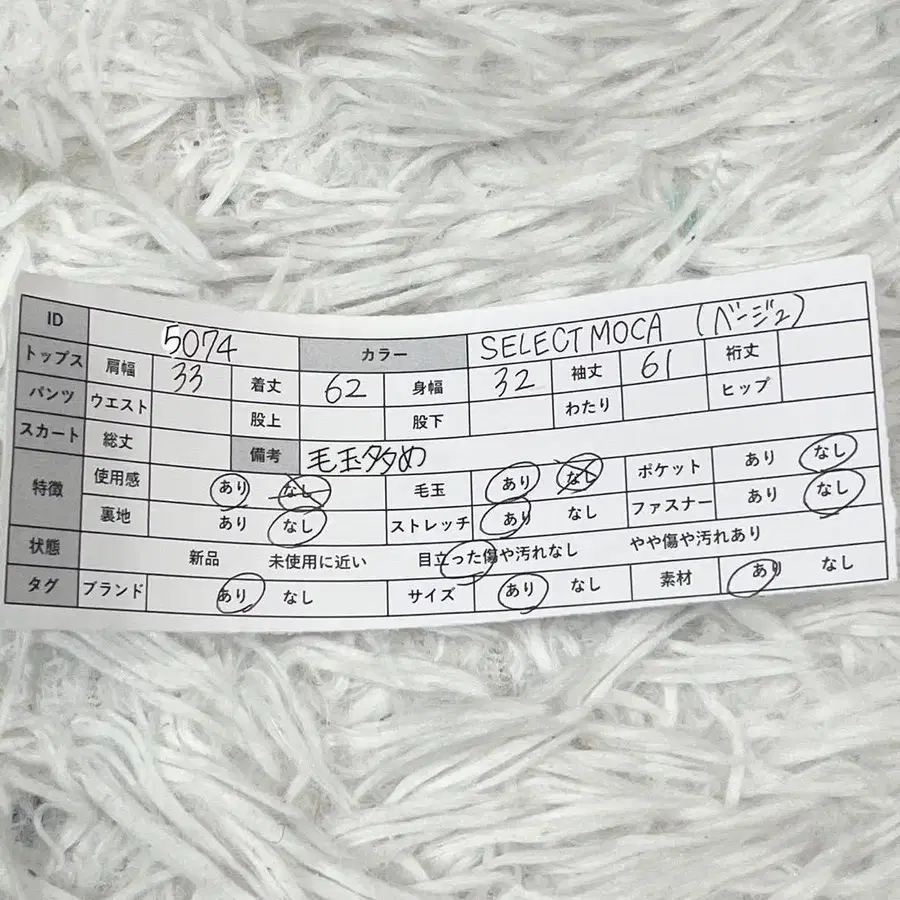 ID 5074 カラー SELECT MOCA (ベージュ)
トップス 肩幅 33 着丈 62 身幅 32 袖丈 61 裄丈
パンツ ウエスト 股上 股下 わたり ヒップ
スカート 総丈 備考 毛玉多め
特徴 使用感 あり なし 毛玉 あり なし ポケット あり なし
裏地 あり なし ストレッチ あり なし ファスナー あり なし
状態 新品 未使用に近い 目立った傷や汚れなし やや傷や汚れあり
タグ ブランド あり なし サイズ あり なし 素材 あり なし